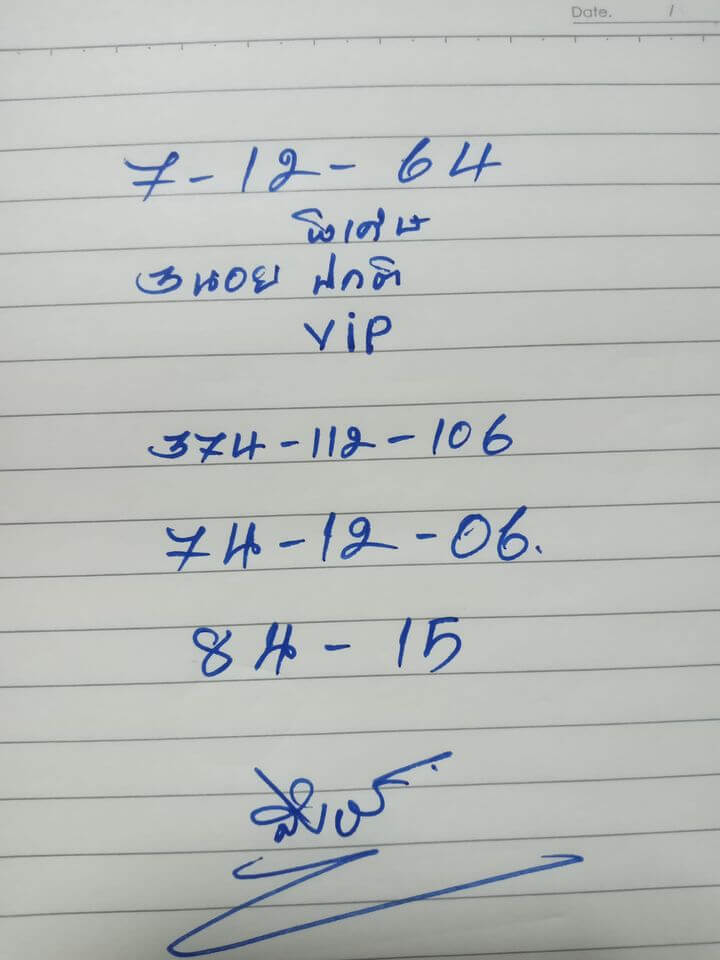 Date. /
7-12-64
พิเศษ
ฮานอย ปกติ
VIP
374-112-106
74-12-06.
84-15